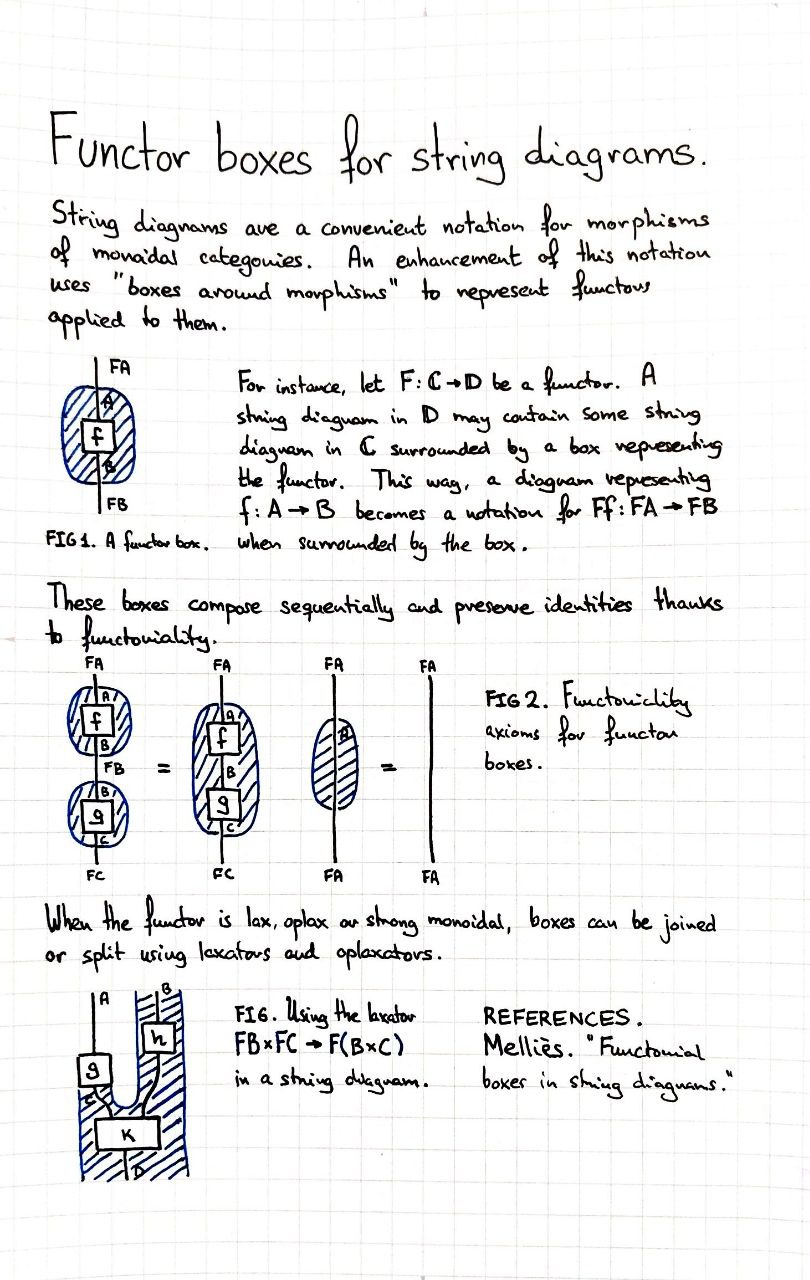 Functor boxes for string diagrams.
String diagrams are a convenient notation for morphisms
of monoidal categories. An enhancement of this notation
uses "boxes around morphisms" to represent functors
applied to them.
FA
A
f
B
FB
FIG 1. A functor box.
For instance, let F: ℂ→𝔻 be a functor. A
string diagram in 𝔻 may contain some string
diagram in ℂ surrounded by a box representing
the functor. This way, a diagram representing
f: A → B becomes a notation for Ff: FA → FB
when surrounded by the box.
These boxes compose sequentially and preserve identities thanks
to functoriality.
FA
A
f
B
FB
B
g
C
FC
=
FA
A
f
B
g
C
FC
FA
A
FA
=
FA
FA
FIG 2. Functoriality
axioms for functor
boxes.
When the functor is lax, oplax or strong monoidal, boxes can be joined
or split using laxators and oplaxators.
A
B
h
g
C
K
D
FIG. Using the laxator
FB×FC → F(B×C)
in a string diagram.
REFERENCES.
Melliès. "Functorial
boxes in string diagrams."